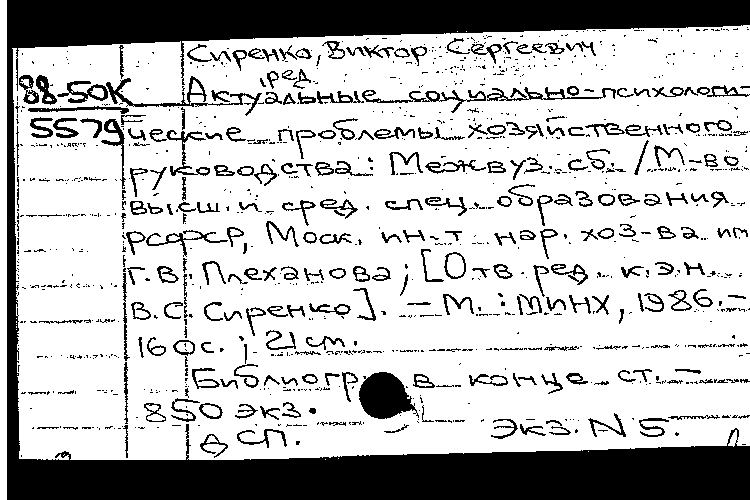 Сиренко, Виктор Сергеевич
ред.
88-50К Актуальные социально-психологи-
5579 ческие проблемы хозяйственного
руководства: Межвуз. сб. / М-во
высш. и сред. спец. образования
РСФСР, Моск. ин-т нар. хоз-ва им
Г.В. Плеханова; [Отв. ред. к.э.н.
В.С. Сиренко]. — М. : МИНХ, 1986. —
160 с. ; 21 см.
Библиогр. в конце ст. —
850 экз.
ДСП. Экз. N 5.